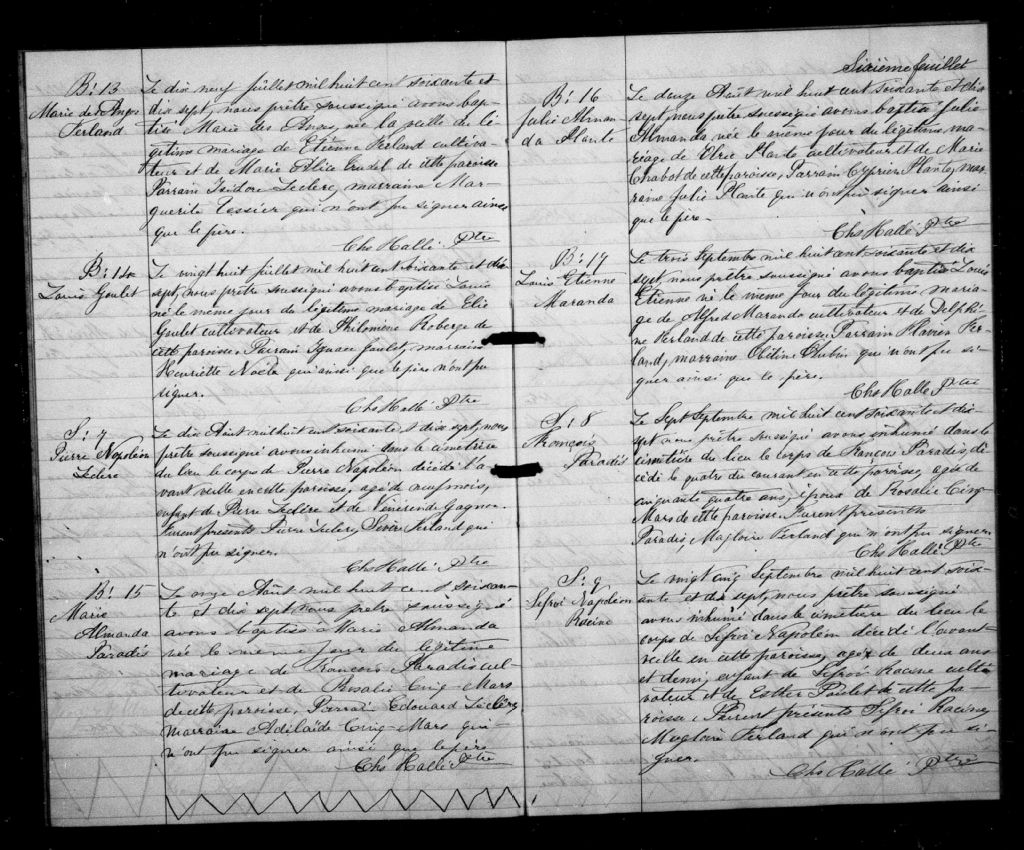 B: 13
Marie des Anges
Ferland
Le dix neuf juillet mil huit cent soixante et
dix sept, nous prêtre soussigné avons bap-
tisé Marie des Anges, née la veille du lé-
gitime mariage de Etienne Ferland cultiva-
teur et de Marie Trudel de cette paroisse
Parrain Isidore Leclère, marraine Mar-
guerite Tessier qui n'ont pu signer ainsi
que le père.
Chs Hallé Ptre
B: 14
Louis Goulet
Le vingt huit juillet mil huit cent soixante et dix
sept, nous prêtre soussigné avons baptisé Louis
né le même jour du légitime mariage de Elie
Goulet cultivateur et de Philomène Roberge de
cette paroisse. Parrain Ignace Goulet, marraine
Henriette Noële qui ainsi que le père n'ont pu
signer.
Chs Hallé Ptre
S: 7
Pierre Napoléon
Leclère
Le dix Août mil huit cent soixante & dix sept, nous
prêtre soussigné avons inhumé dans le cimetière
du lieu le corps de Pierre Napoléon décédé l'a-
vant veille en cette paroisse, agé de neuf mois,
enfant de Pierre Leclère et de Vénérende Gagnon.
Furent présents Pierre Leclère, Sévère Ferland qui
n'ont pu signer.
Chs Hallé Ptre
B: 15
Marie
Almanda
Paradis
Le onze Août mil huit cent soixan-
te et dix sept, nous prêtre soussigné
avons baptisé Marie Almanda
née le même jour du légitime
mariage de François Paradis cul-
tivateur et de Rosalie Cinq-Mars
de cette paroisse, Parrain Edouard Leclère
marraine Adélaïde Cinq-Mars qui
n'ont pu signer ainsi que le père
Chs Hallé Ptre
Sixième feuillet
B: 16
Julie Alman
da Plante
Le douze Août mil huit cent soixante et dix
sept, nous prêtre soussigné avons baptisé Julie
Almanda née le même jour du légitime ma-
riage de Plante cultivateur et de Marie
Chabot de cette paroisse, Parrain Cyprien Plante, mar-
raine Julie Plante qui n'ont pu signer ainsi
que le père.
Chs Hallé Ptre
B: 17
Louis Etienne
Maranda
Le trois Septembre mil huit cent soixante et dix
sept, nous prêtre soussigné avons baptisé Louis
Etienne né le même jour du légitime maria-
ge de Alfred Maranda cultivateur & de Delphi-
ne Ferland de cette paroisse. Parrain Flavien Fer-
land, marraine Aubin qui n'ont pu si-
gner ainsi que le père.
Chs Hallé Ptre
S: 8
François
Paradis
Le Sept Septembre mil huit cent soixante et dix-
sept nous prêtre soussigné avons inhumé dans le
cimetière du lieu le corps de François Paradis, dé-
cédé le quatre du courant en cette paroisse, agé de
cinquante quatre ans, époux de Rosalie Cinq-
Mars de cette paroisse. Furent présents
Paradis, Magloire Ferland qui n'ont pu signer.
Chs Hallé Ptre
S: 9
Sefroi Napoléon
Racine
Le vingt cinq Septembre mil huit cent soix-
ante et dix sept, nous prêtre soussigné
avons inhumé dans le cimetière du lieu le
corps de Sefroi Napoléon décédé l'avant
veille en cette paroisse, agé de deux ans
et demi, enfant de Sefroi Racine culti-
vateur et de Esther Paulet de cette pa-
roisse. Furent présents Sefroi Racine,
Magloire Ferland qui n'ont pu si-
gner.
Chs Hallé Ptre